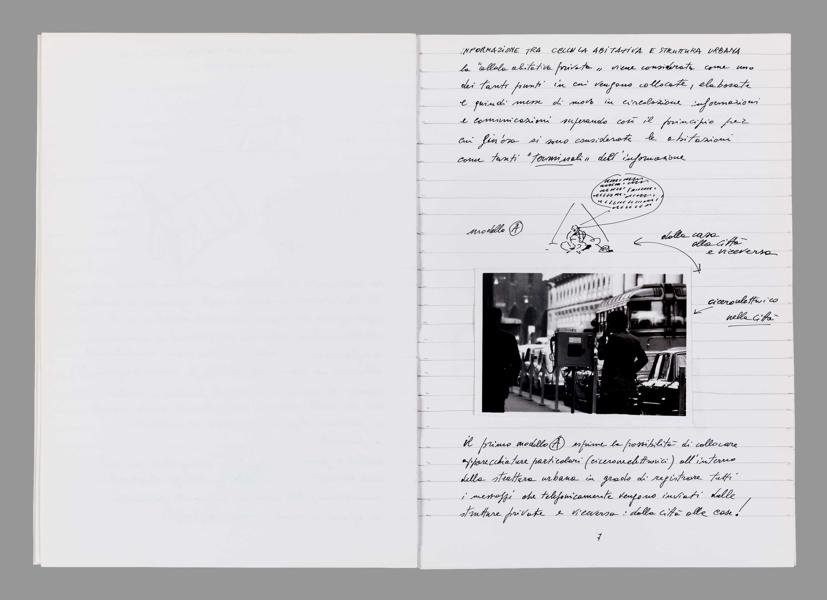 INFORMAZIONE TRA CELLULA ABITATIVA E STRUTTURA URBANA
la "cellula abitativa privata" viene considerata come uno
dei tanti punti in cui vengono collocate, elaborate
e quindi messe di nuovo in circolazione informazioni
e comunicazioni superando così il principio per
cui fin'ora si sono considerate le abitazioni
come tanti "terminali" dell'informazione
modello A
dalla casa
alla città
e viceversa
ciceronelettrico
nella città
il primo modello A esprime la possibilità di collocare
apparecchiature particolari (ciceronelettrici) all'interno
della struttura urbana in grado di registrare tutti
i messaggi che telefonicamente vengono inviati dalle
strutture private e viceversa: dalla città alle case!
7